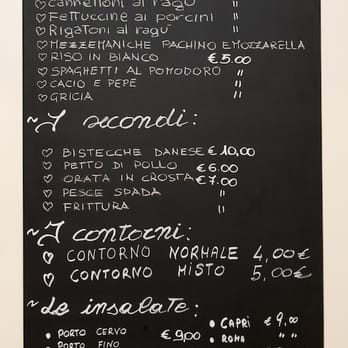 ♡ Cannelloni al ragù "
♡ Fettuccine ai porcini "
♡ Rigatoni al ragù "
♡ MEZZEMANICHE PACHINO E MOZZARELLA
♡ RISO IN BIANCO €5.00
♡ SPAGHETTI AL POMODORO "
♡ CACIO E PEPE "
♡ GRICIA "
~I secondi:
♡ BISTECCHE DANESE €10,00
♡ PETTO DI POLLO €6.00
♡ ORATA IN CROSTA €7.00
♡ PESCE SPADA "
♡ FRITTURA "
~I contorni:
♡ CONTORNO NORMALE 4,00€
♡ CONTORNO MISTO 5,00€
~Le insalate:
• PORTO CERVO €9,00
• PORTO FINO
• CAPRÌ €9,00
• ROMA " "